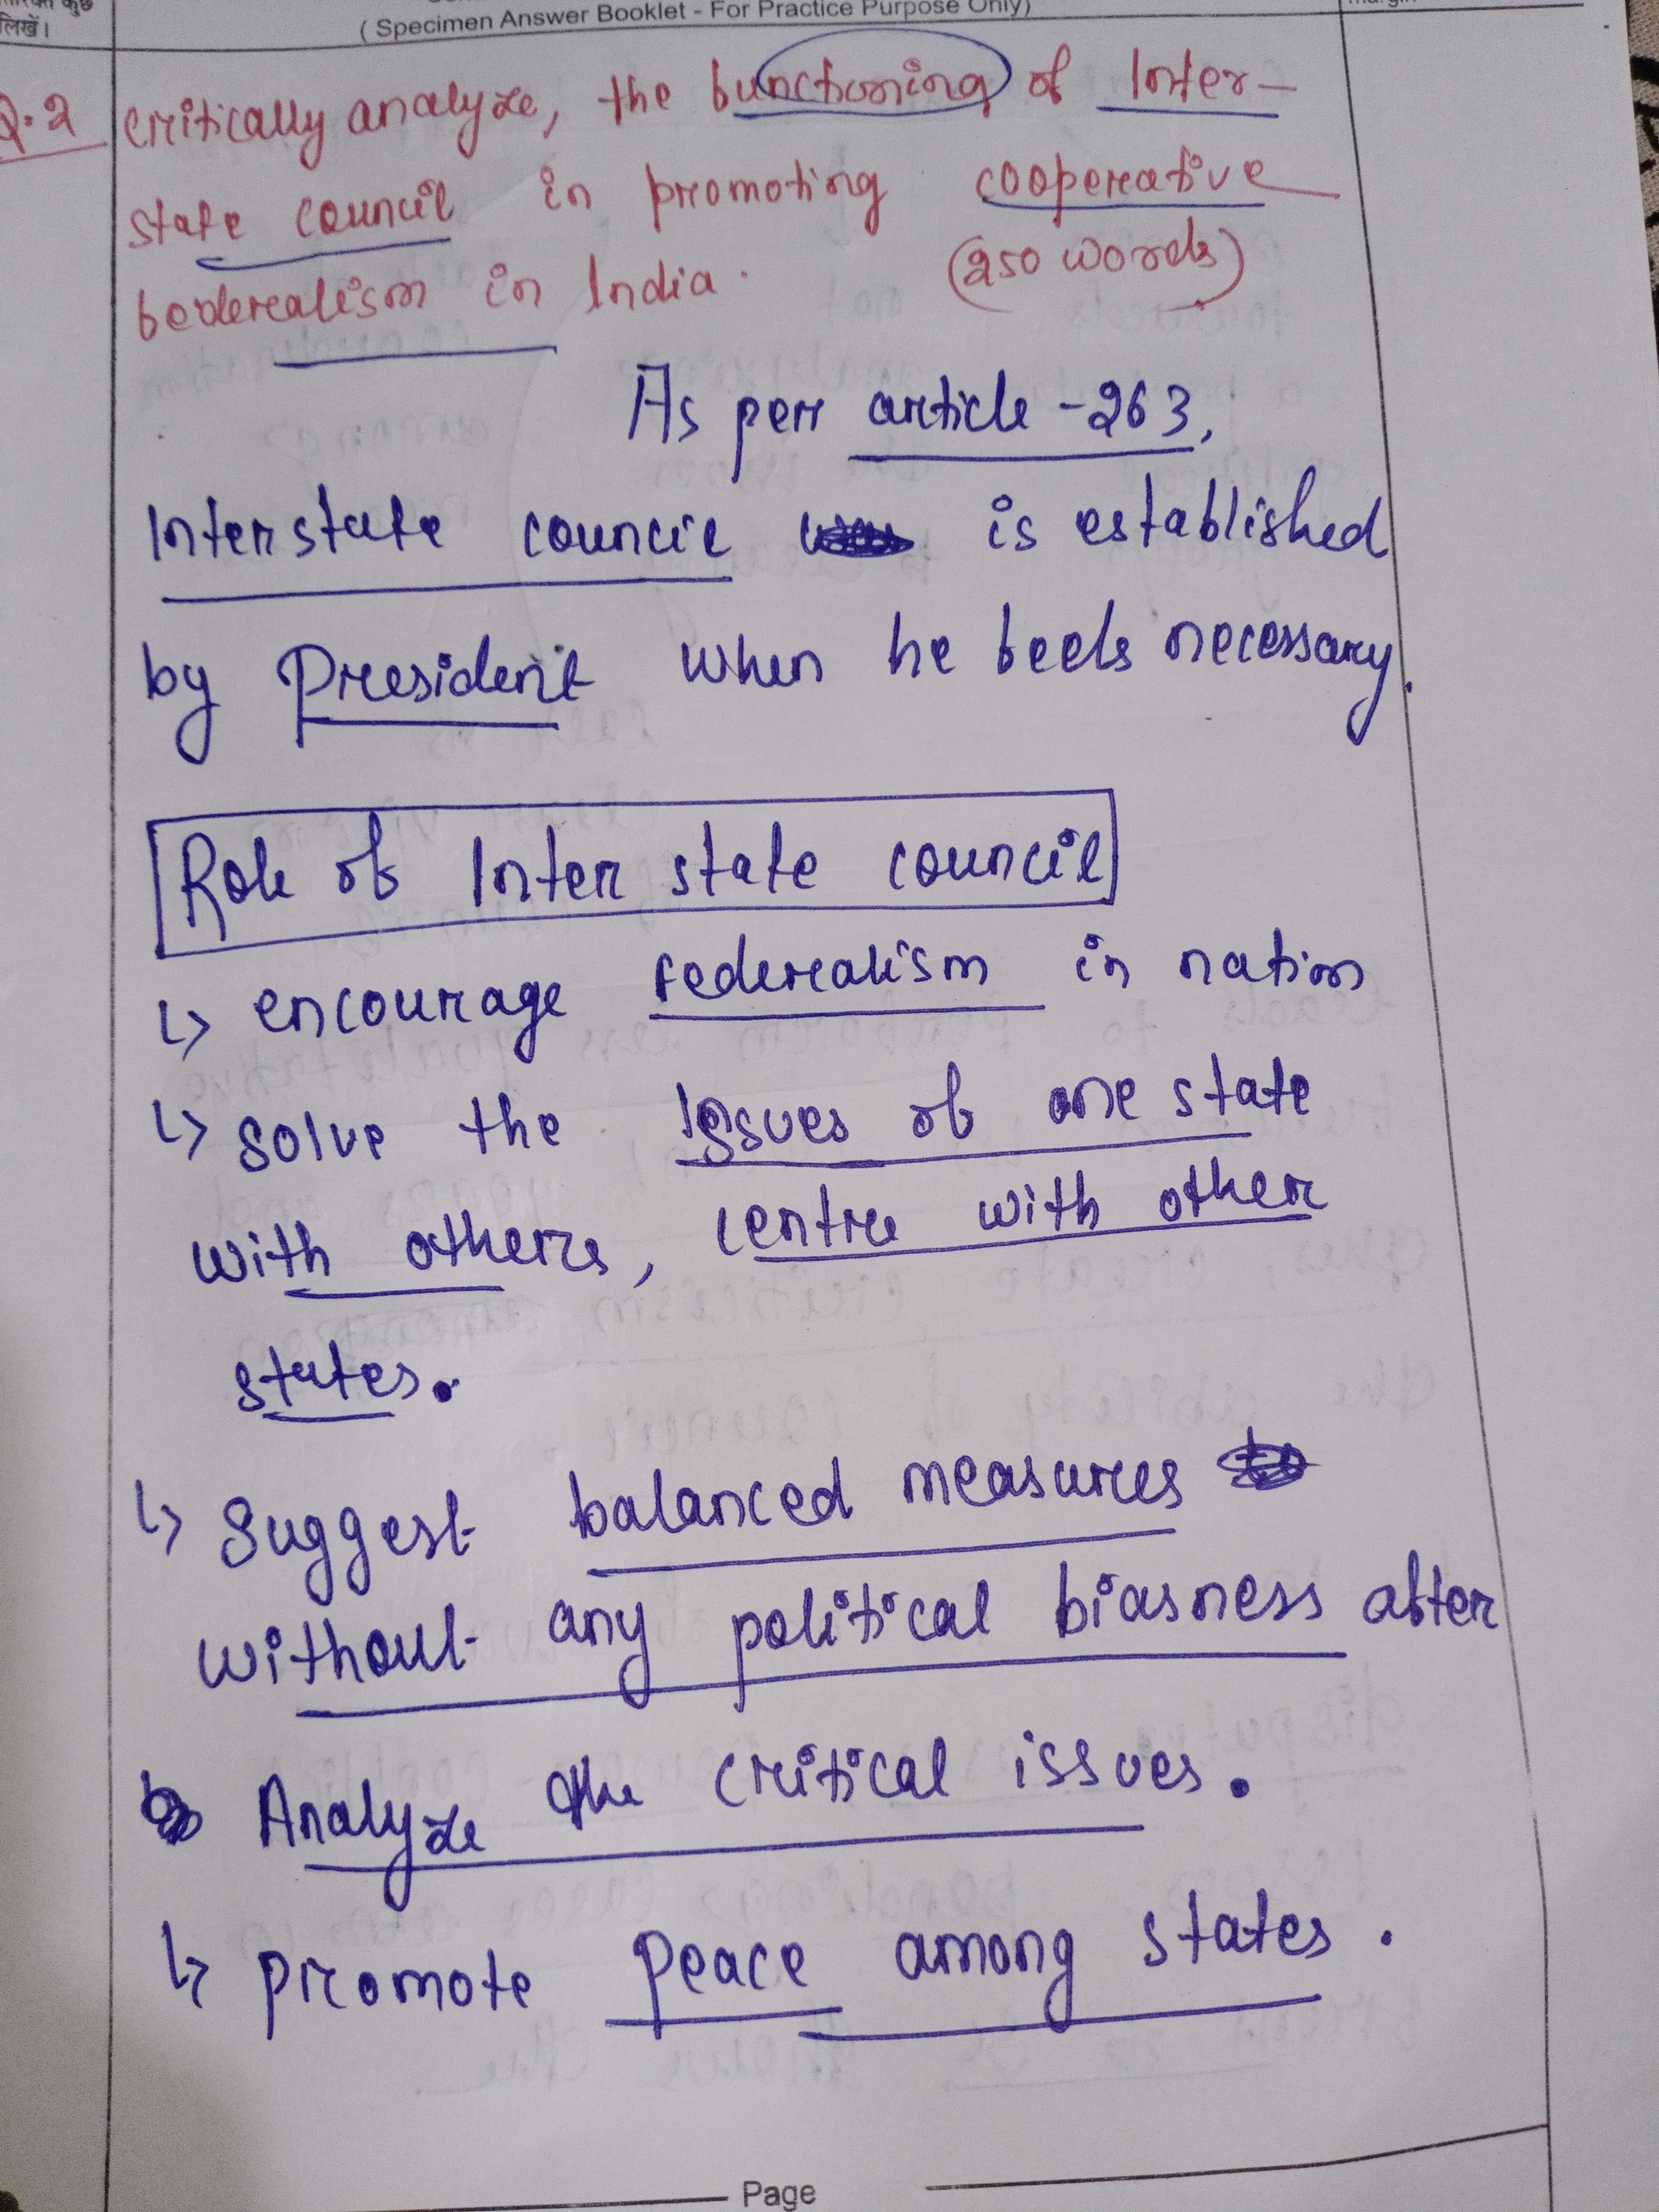 लिखें।
( Specimen Answer Booklet - For Practice Purpose Only)
Q.2 critically analyze, the functioning of Inter-
state council in promoting cooperative
federealism in India. (250 words)
As per article -263,
Inter state council is established
by President when he feels necessary.
Role of Inter state council
↳ encourage federealism in nation
↳ solve the issues of one state
with others, centre with other
states.
↳ suggest balanced measures
without any political biasness after
Analyze the critical issues.
↳ promote peace among states.
Page